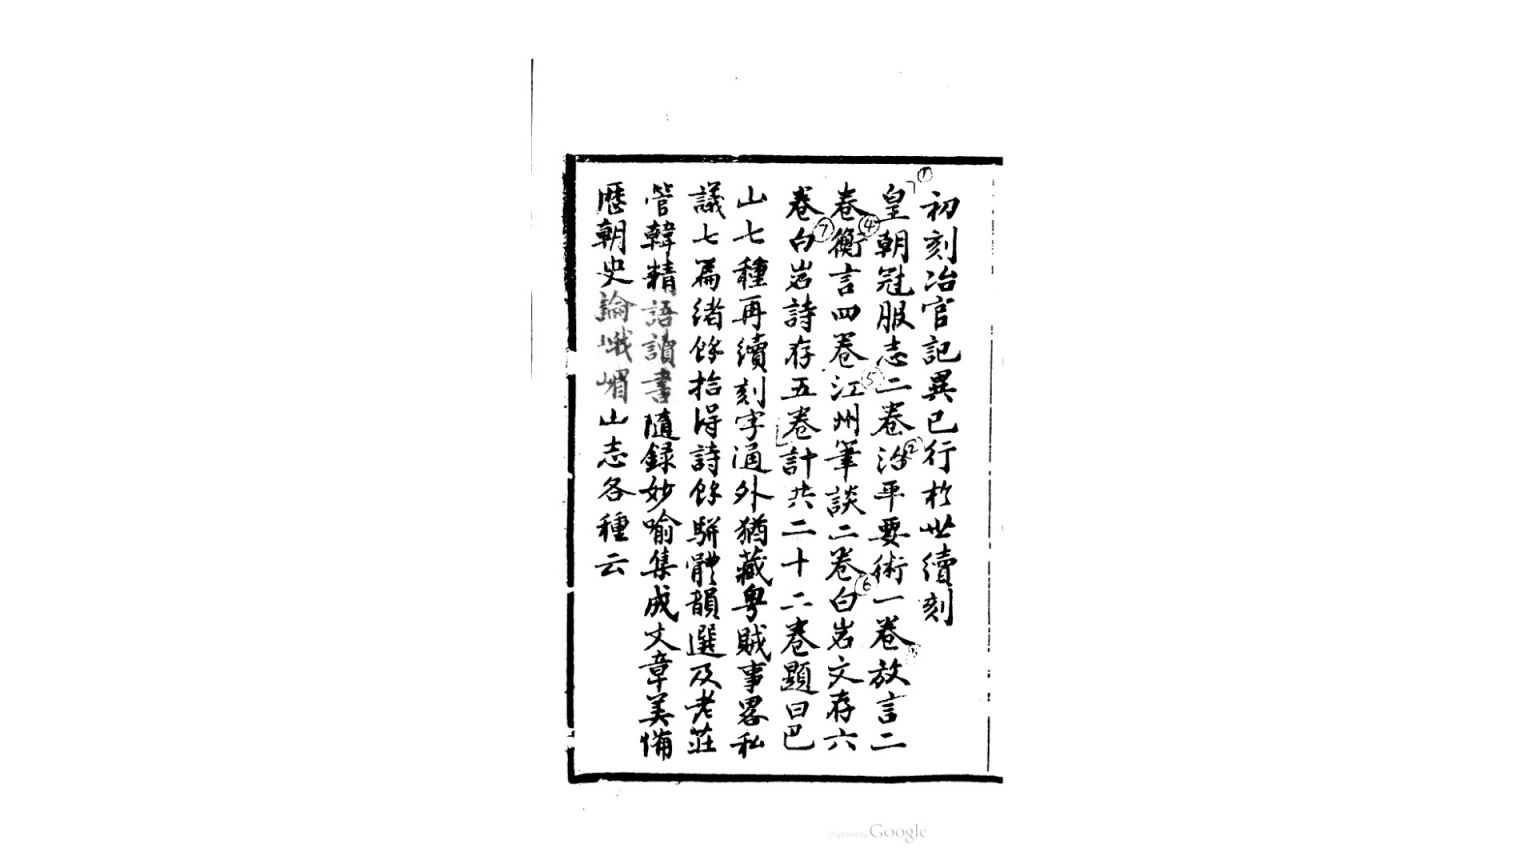 初刻冶官記異已行於世續刻
皇朝冠服志二卷治平要術一卷放言二
卷衡言四卷江州筆談二卷白岩文存六
卷白岩詩存五卷計共二十二卷題曰巴
山七種再續刻字通外猶藏粵賊事畧私
議七篇緒餘拾得詩餘駢體韻選及老莊
管韓精語讀書隨録妙喻集成文章美備
歷朝史論峨嵋山志各種云
① ② ④ ⑤ ⑥ ⑦
Digitized by Google